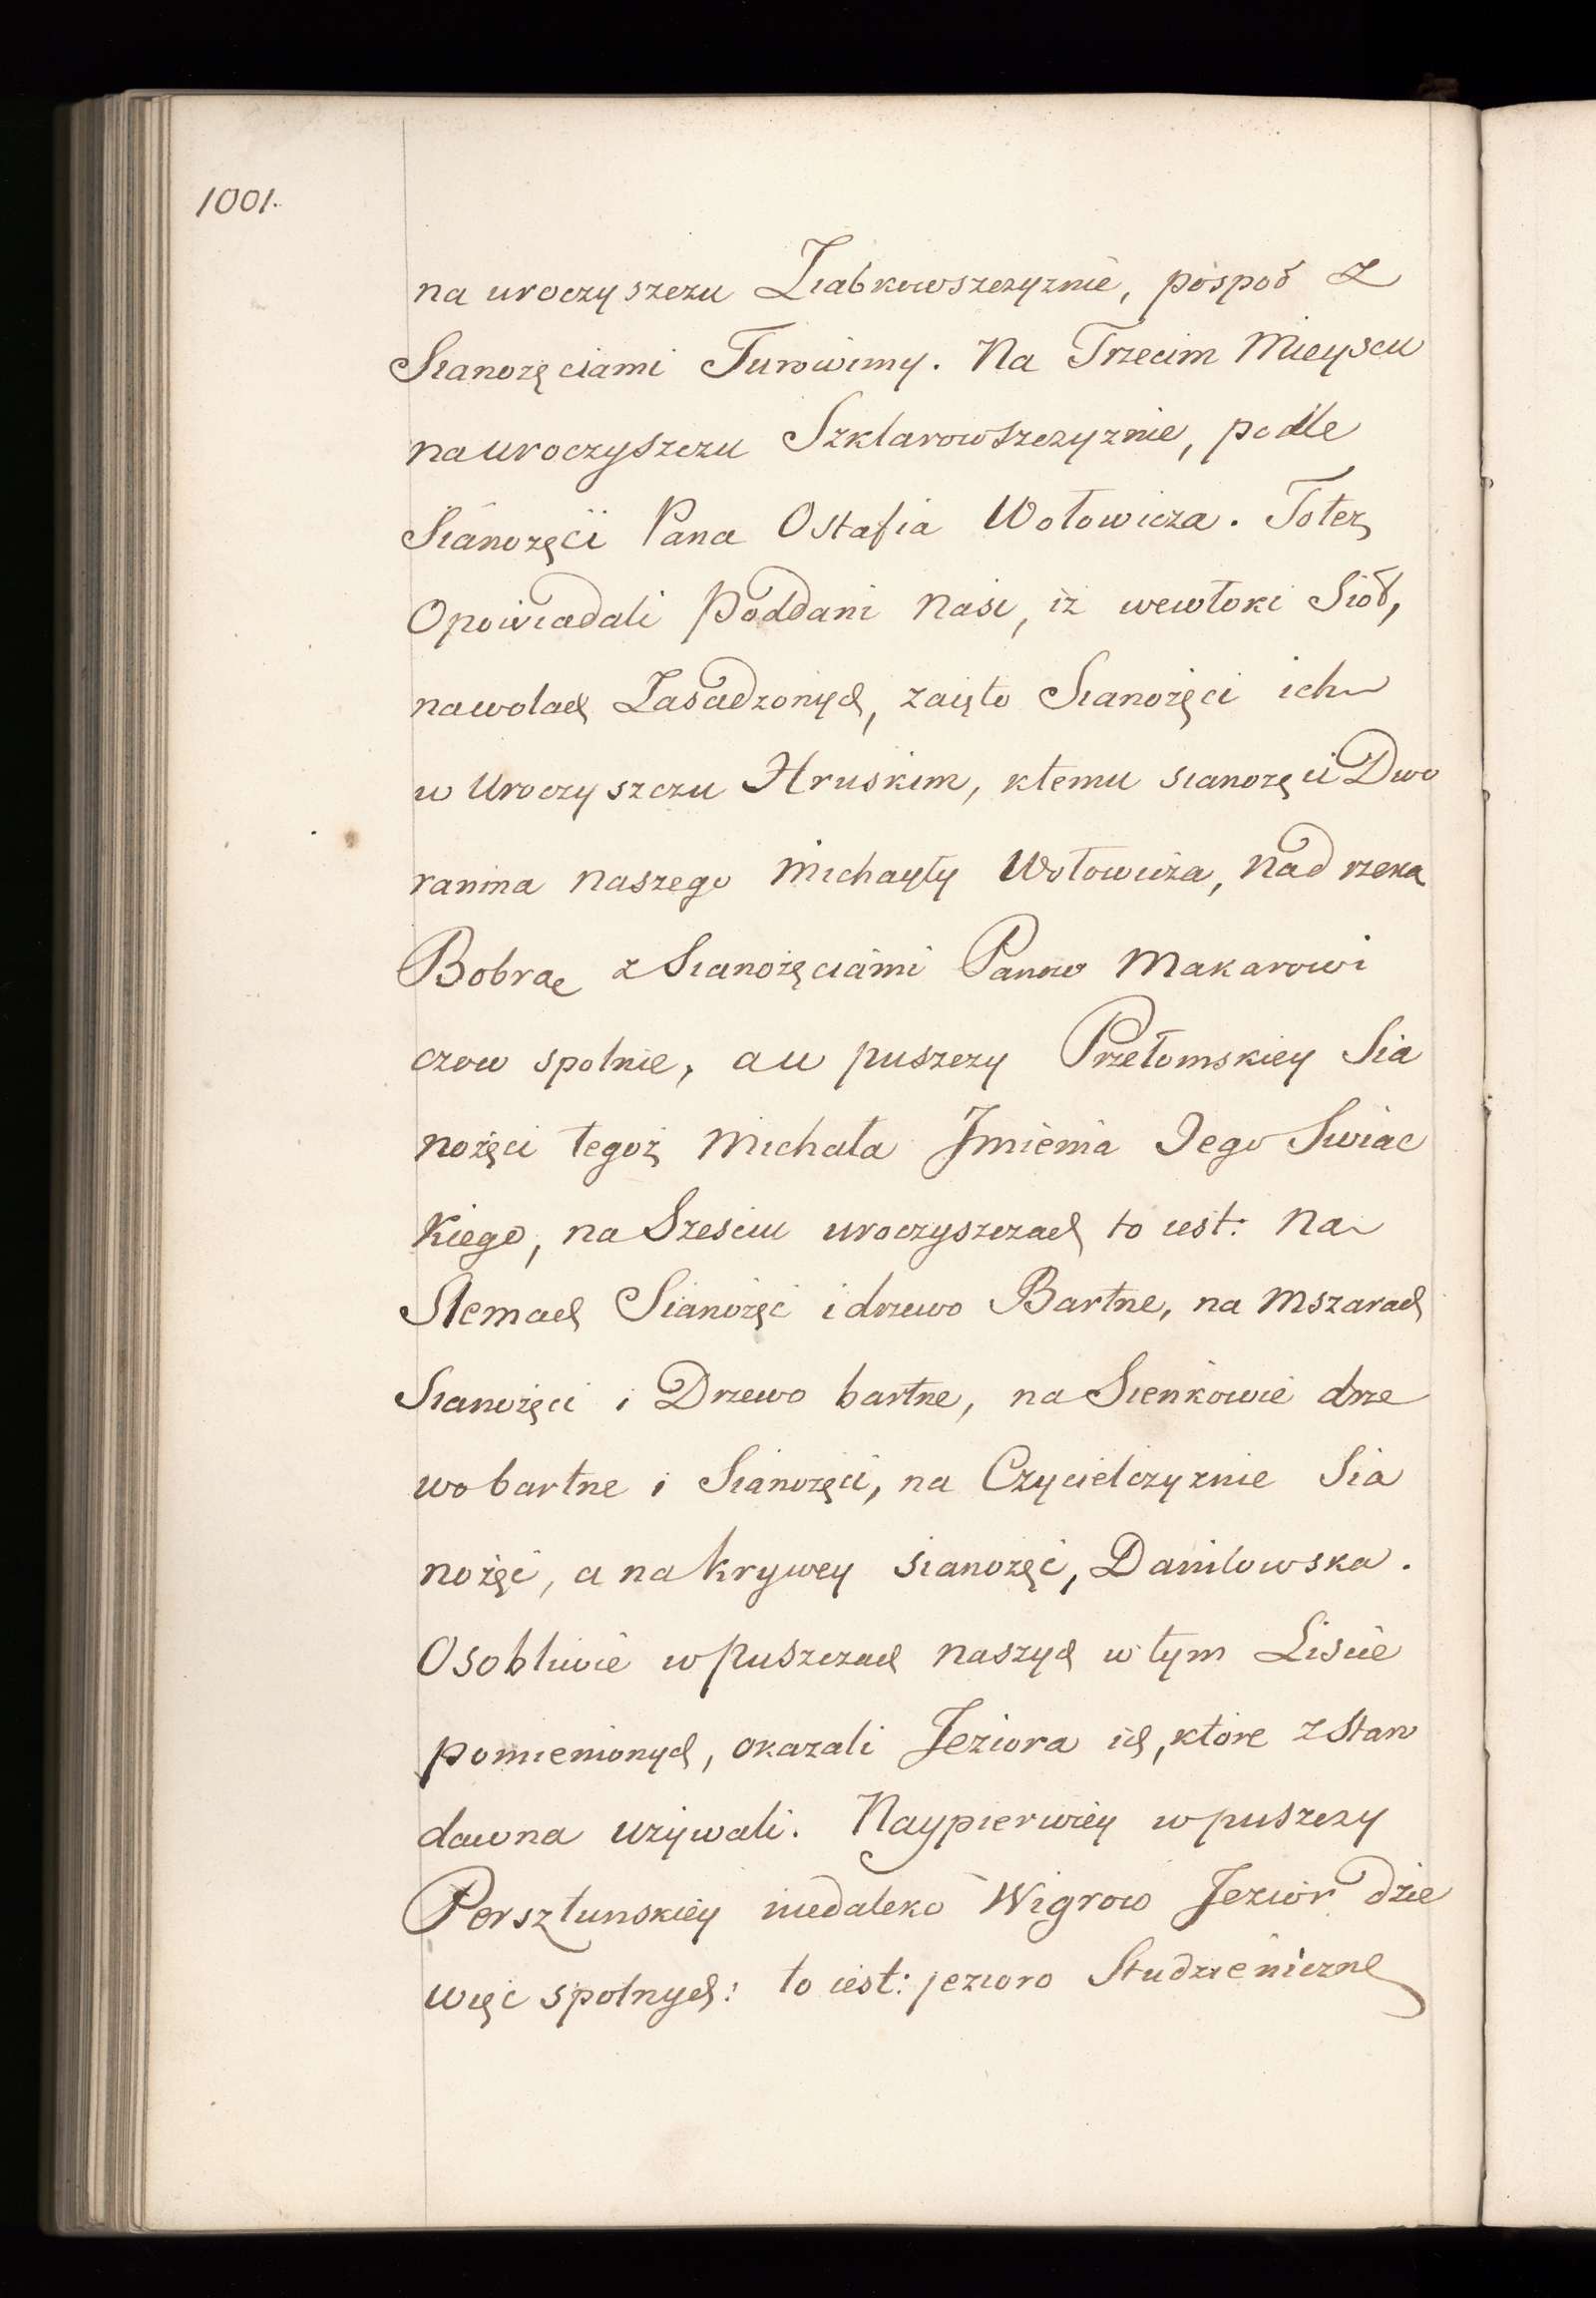 1001.
na uroczyszczu Ziabkowszczyznie, pospoł z
Sianozęciami Turowimy. Na Trzecim Mieyscu
na uroczyszczu Szklarowszczyznie, podle
Sianozęci Pana Ostafia Wołowicza. Toteż
Opowiadali Poddani Nasi, iż wewłoki Sioł,
nawolach Zasadzonych, zaięto Sianożęci ich
w Uroczyszczu Hruskim, ktemu sianozęci Dwo
ranina naszego Michayły Wołowicza, nad rzeka
Bobrae z Sianożęciami Panow Makarowi
czow spolnie, a w puszczy Przełomskiey Sia
nożęci tegoż Michała Jmienia Jego Swiac
kiego, na Szesciu uroczyszczach to iest: Na
Slemach Sianożęć i drzewo Bartne, na Mszarach
Sianożęci i Drzewo bartne, na Sienkowie drze
wo bartne i Sianozęci, na Czycielczyznie Sia
nożęć, a na krywey sianozęć, Danilowska.
Osobliwie w puszczach naszych w tym Liscie
pomienionych, okazali Jeziora ich, które z Staro
dawna używali. Naypierwiey w puszczy
Persztunskiey niedaleko Wigrow Jezior dzie
więć spolnych: to iest: jezioro Studzieniczne